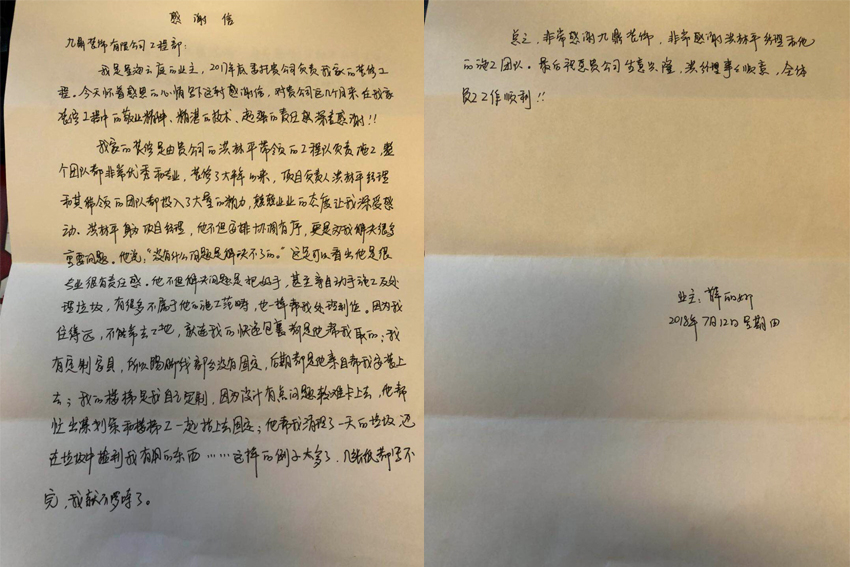 感谢信
九鼎装饰有限公司工程部：
我是星河云庭的业主，2017年底委托贵公司负责我家的装修工
程。今天怀着感恩的心情写下这封感谢信，对贵公司这几个月来在我家
装修工程中的敬业精神、精湛的技术、超强的责任表深表感谢！！
我家的装修是由贵公司的洪林平带领的工程队负责施工，整
个团队都非常优秀和专业，装修了大半年以来，项目负责人洪林平经理
和其带领的团队都投入了大量的精力，兢兢业业的态度让我深受感
动。洪林平身为项目经理，他不但安排协调有序，更是为我解决很多
重要问题。他说："没有什么问题是解决不了的。"这足可以看出他是很
专业很有责任感。他不但解决问题是把好手，甚至亲自动手施工及处
理垃圾，有很多不属于他的施工范畴，也一样帮我处理到位。因为我
住得远，不能常去工地，就连我的快递包裹都是他帮我取的；我
有定制家具，所以踢脚线部分没有固定，后期都是他亲自帮我安装上
去；我的楼梯是我自己定制，因为设计有点问题较难卡上去，他帮
忙出谋划策和楼梯工一起抬上去固定；他帮我清理了一天的垃圾，还
在垃圾中捡到我有用的东西……这样的例子太多了，几张纸都写不
完，我就不啰嗦了。
总之，非常感谢九鼎装饰，非常感谢洪林平经理和他
的施工团队。最后祝愿贵公司生意兴隆，洪经理事事顺意，全体
员工工作顺利！！
业主：薛丽娜
2018年7月12日 星期四